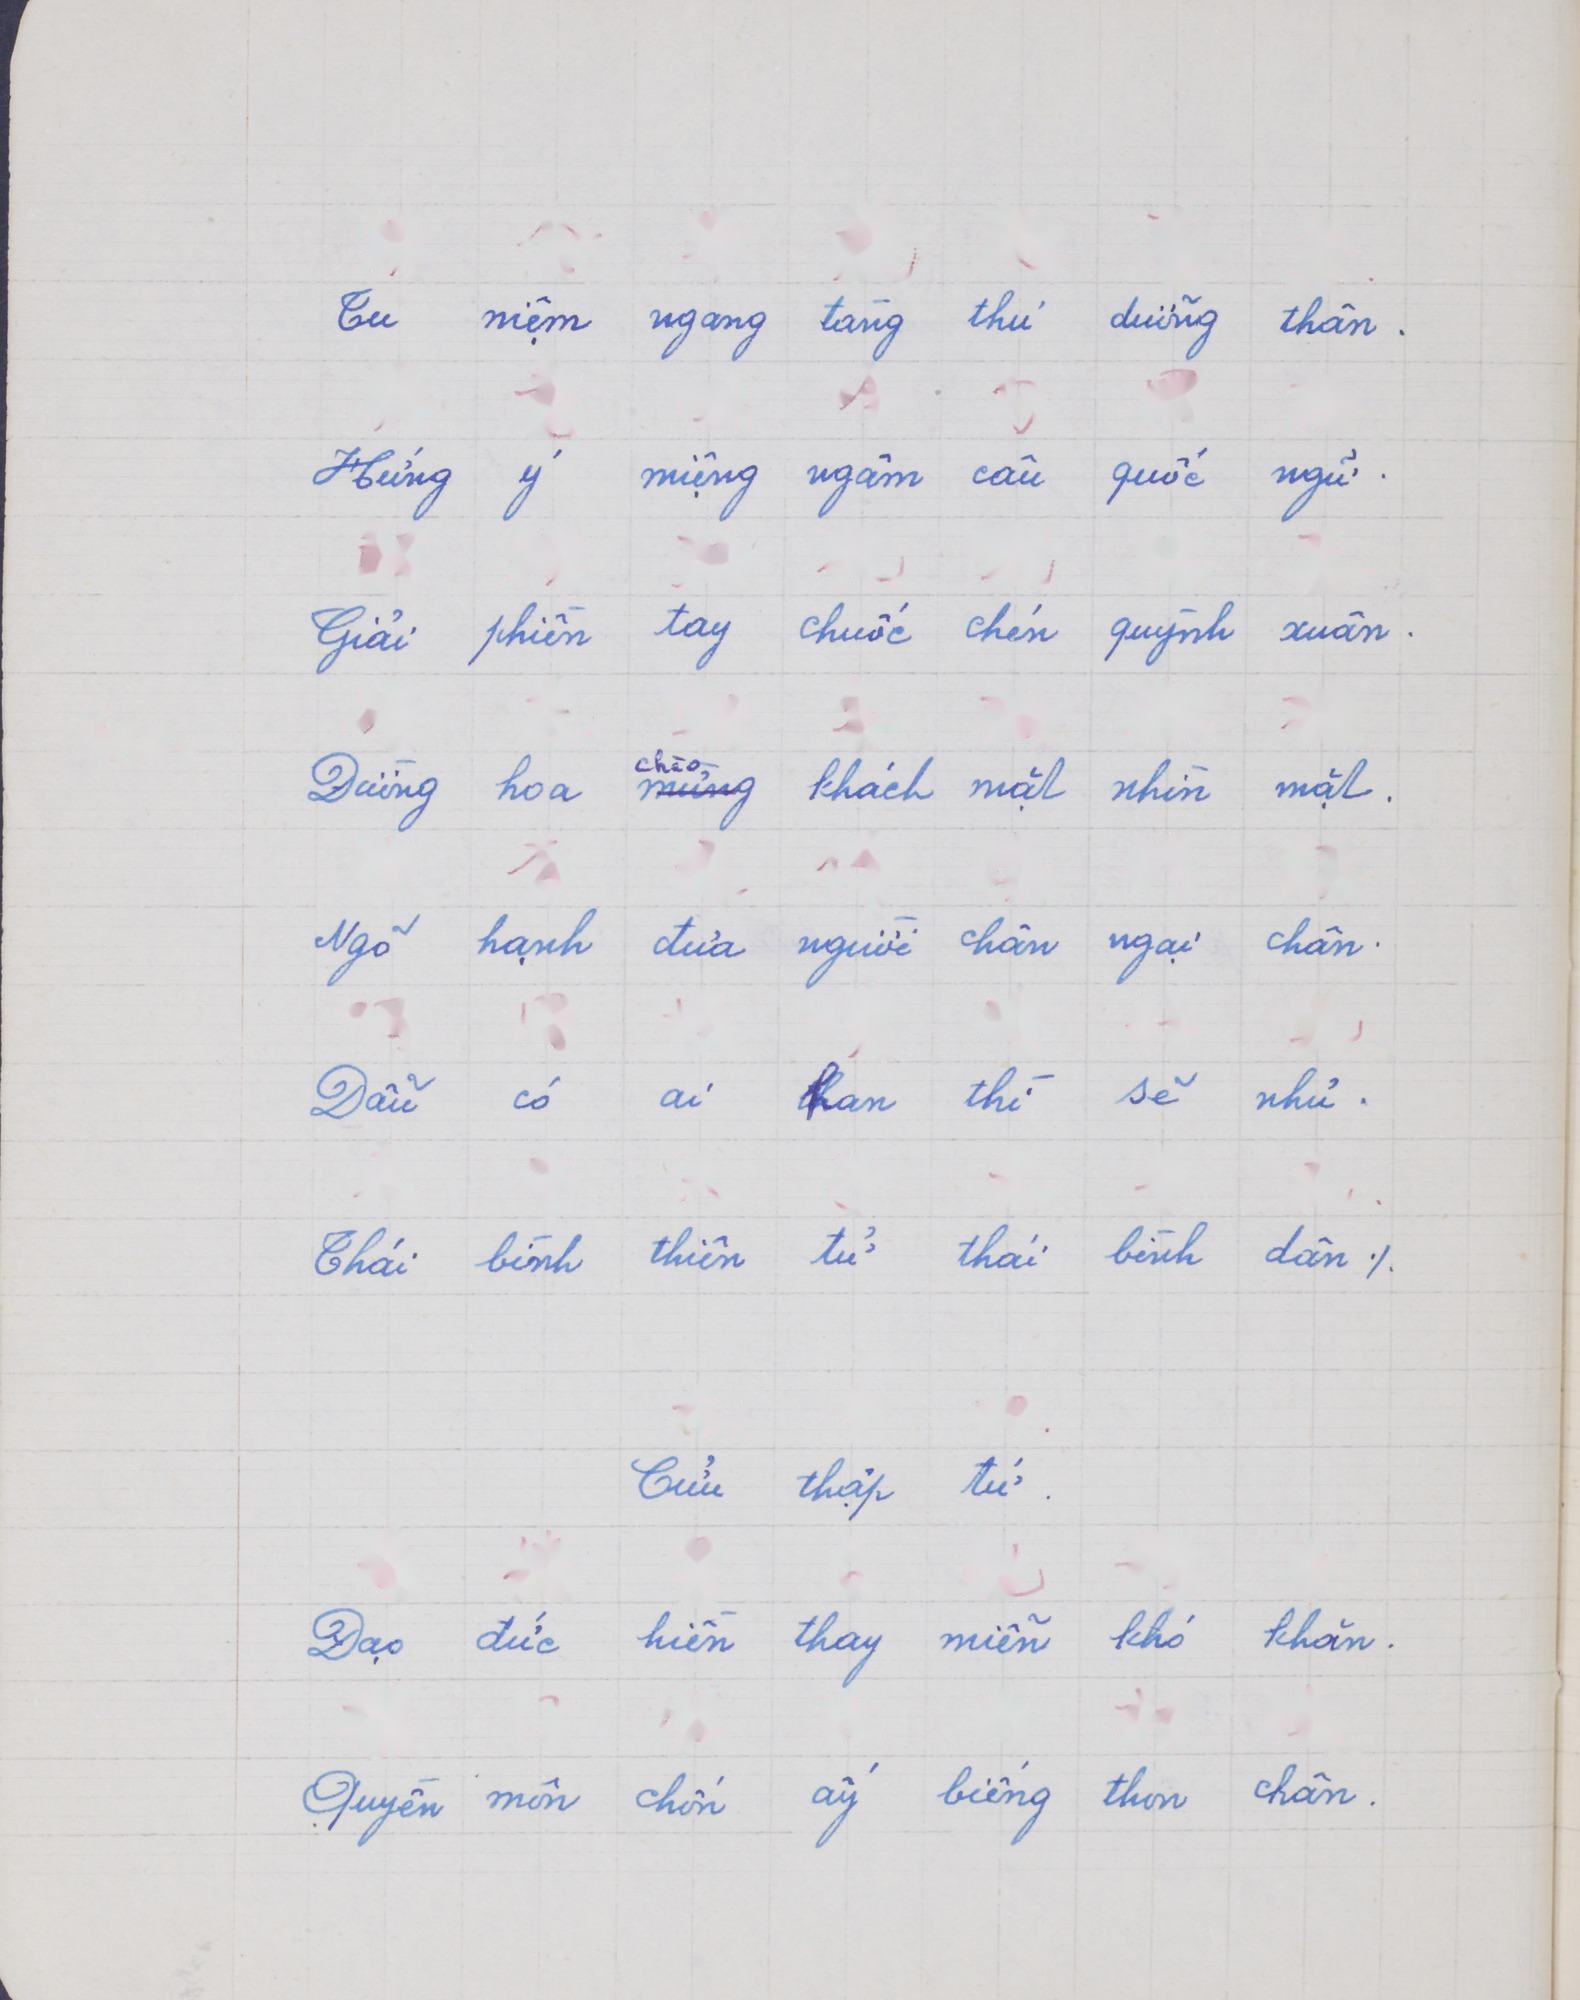 Tu niệm ngang tàng thú dưỡng thân.
Hứng ý miệng ngâm câu quốc ngữ.
Giải phiền tay chuốc chén quỳnh xuân.
Đường hoa chào mừng khách mặt nhìn mặt.
Ngõ hạnh đưa người chân ngại chân.
Dẫu có ai han thì sẽ nhủ.
Thái bình thiên tử thái bình dân ./.
Cửu thập tứ.
Đạo đức hiền thay miễn khó khăn.
Quyền môn chốn ấy biếng thon chân.